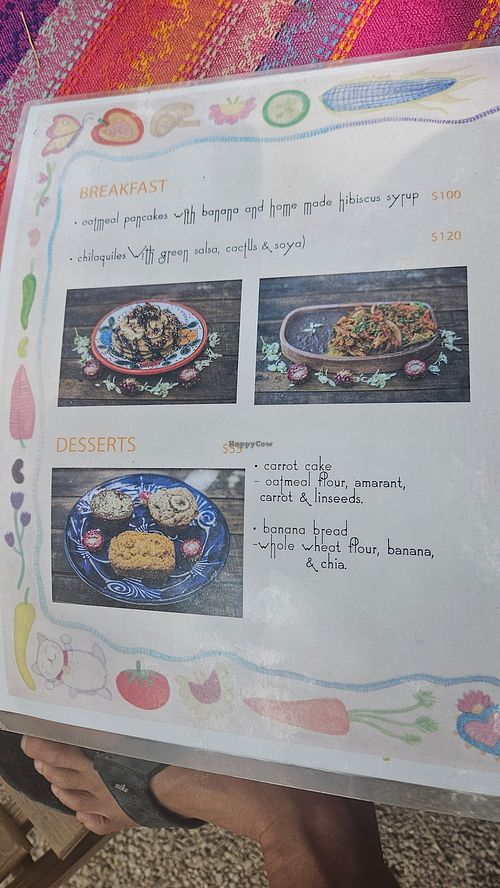 BREAKFAST
• oatmeal pancakes with banana and home made hibiscus syrup $100
• chilaquiles with green salsa, cactus & soya) $120
DESSERTS $55
HappyCow
• carrot cake
- oatmeal flour, amarant,
carrot & linseeds.
• banana bread
-whole wheat flour, banana,
& chia.
nike